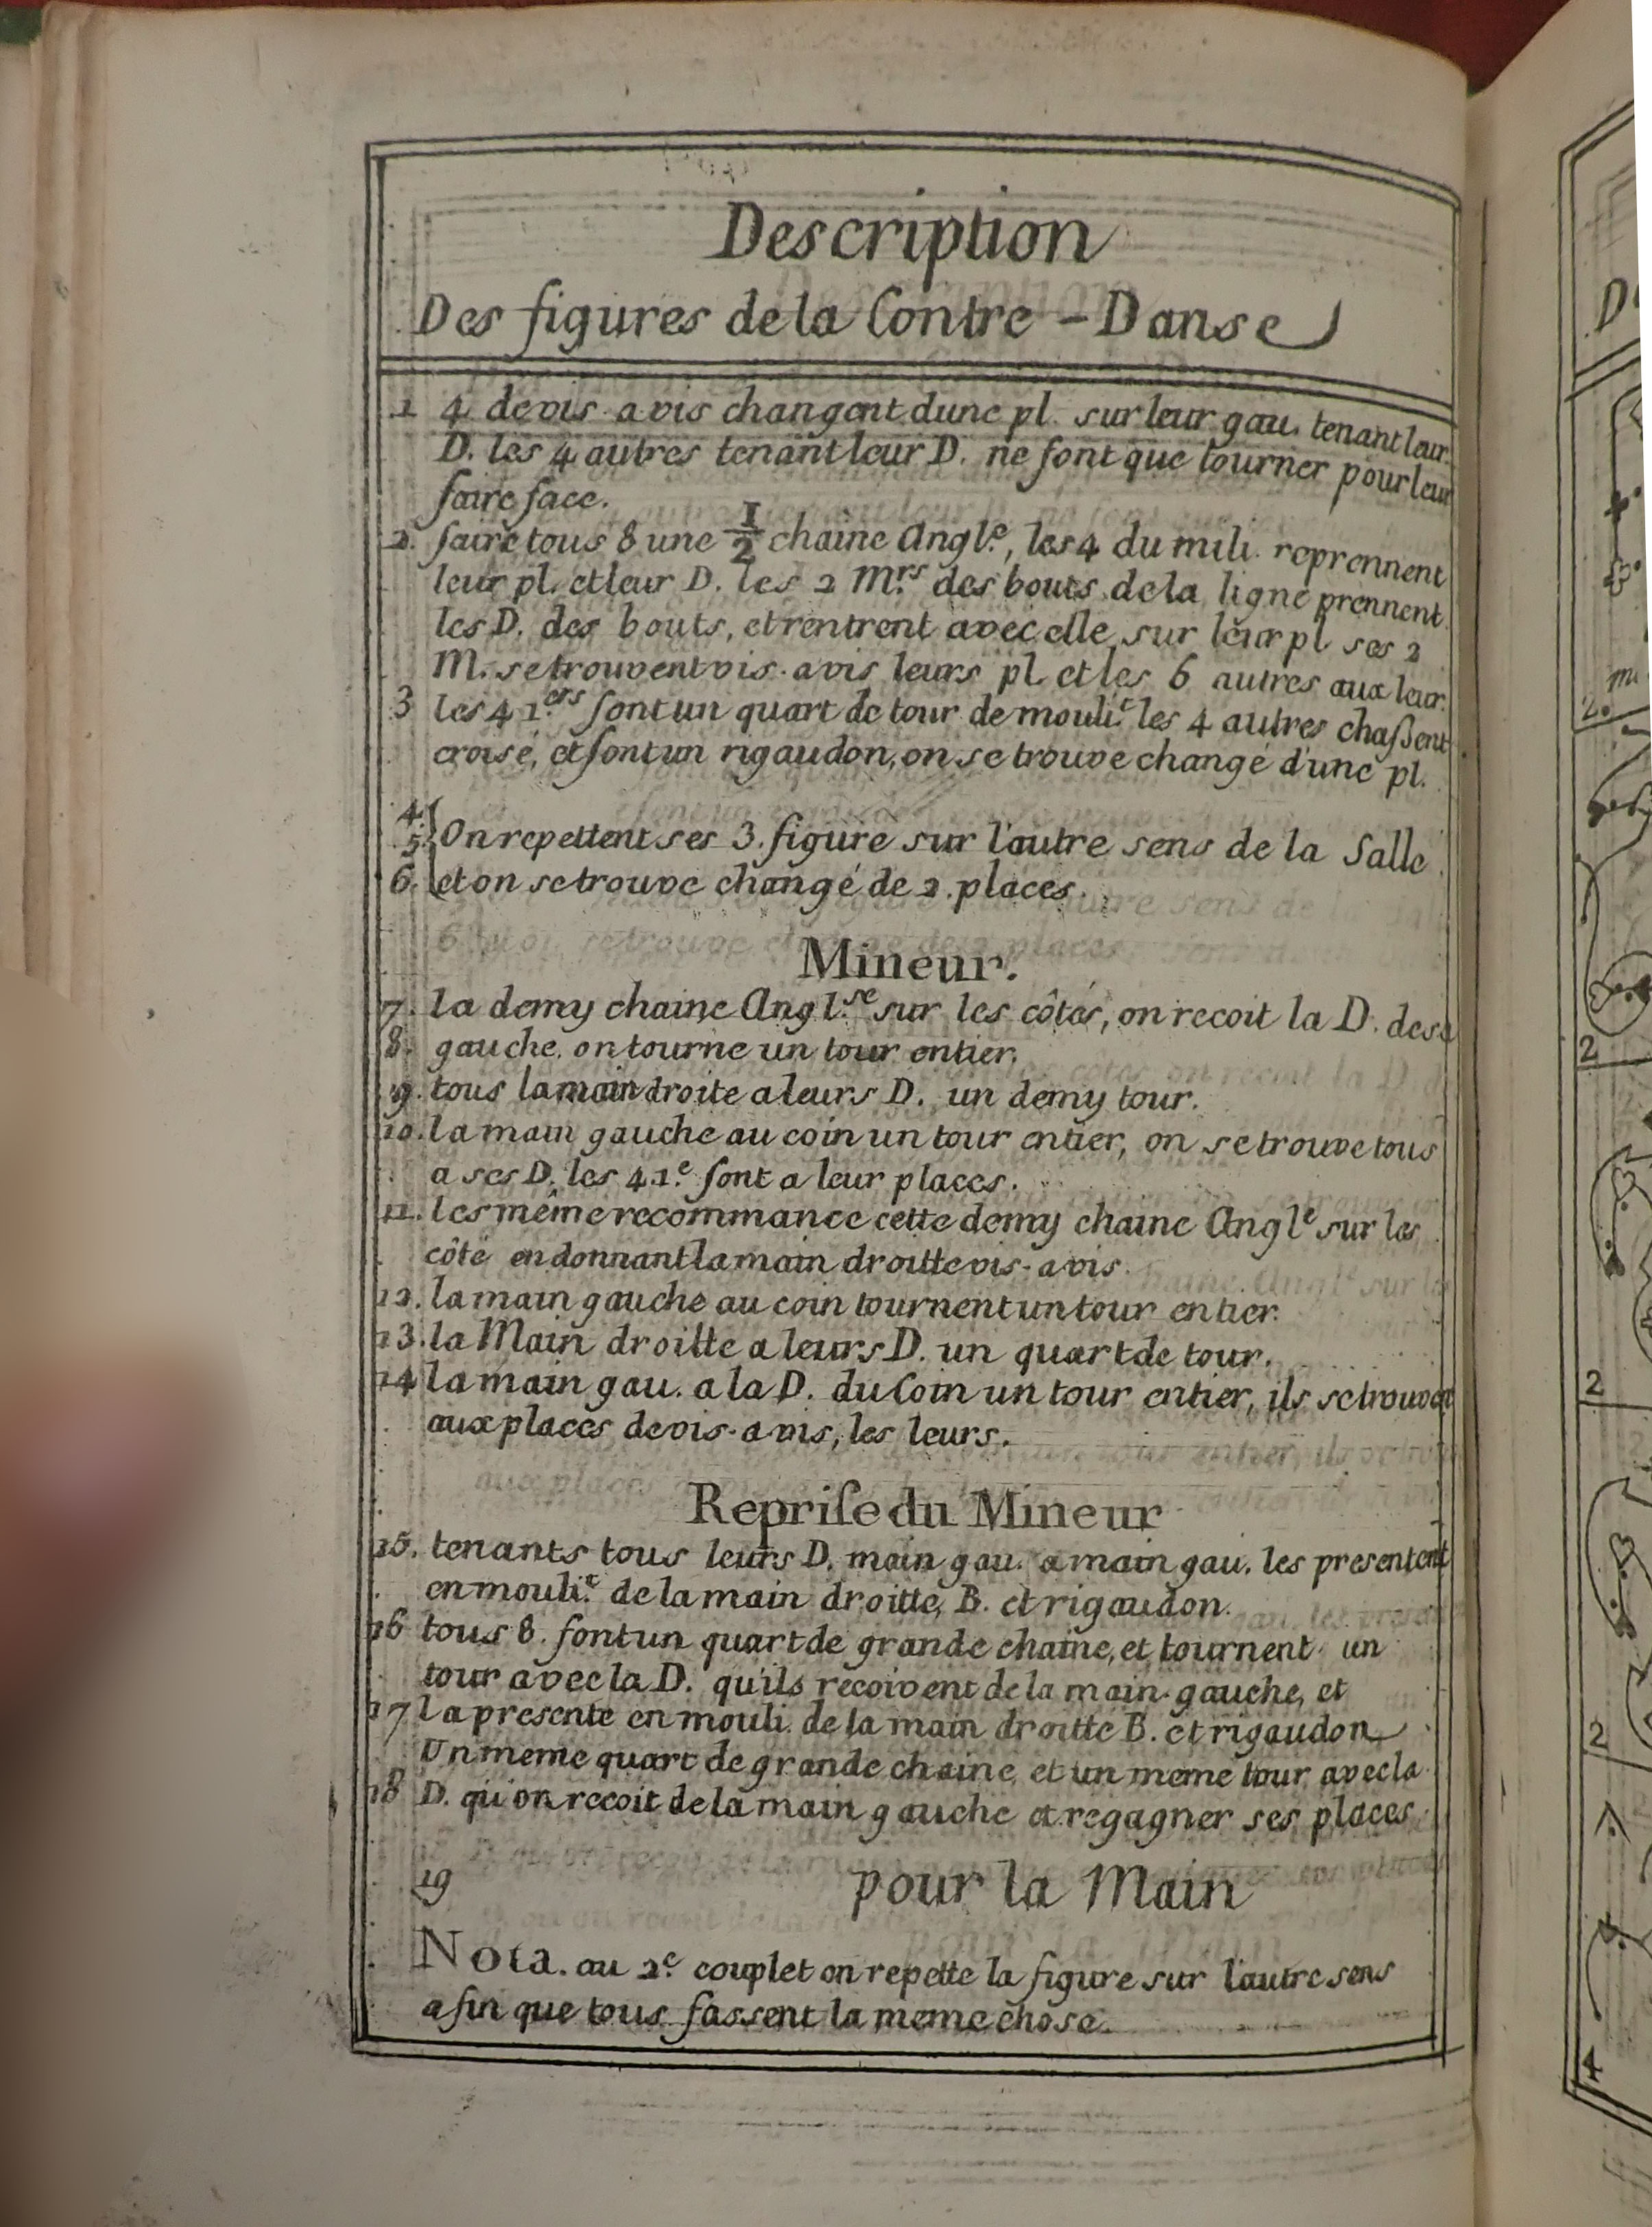 Description
Des figures de la Contre - Danse
1 4 devis avis changent dune pl. sur leur gau. tenant leur
D. les 4 autres tenant leur D. ne font que tourner pour leur
faire face.
2. faire tous 8 une 1/2 chaine Angl.e, les 4 du mili. reprennent
leur pl. et leur D. les 2 M.rs des bouts de la ligne prennent
les D. des bouts, et rentrent avec elle sur leur pl ses 2
M. se trouvent vis. avis leurs pl. et les 6 autres aux leur.
3 les 4 1.ers font un quart de tour de mouli.t les 4 autres chaßent
croisé, et font un rigaudon, on se trouve changé d'une pl.
4.
5. On repettent ses 3. figure sur l'autre sens de la Salle
6. et on se trouve changé de 2. places.
Mineur.
7. la demy chaine Angl.se sur les côtés, on recoit la D. de sa
8. gauche. on tourne un tour entier.
9. tous la main droite a leurs D. un demy tour.
10. la main gauche au coin un tour entier, on se trouve tous
a ses D. les 4. 1.e sont a leur places.
11. les même recommance cette demy chaine Angl.e sur les
côté en donnant la main droitte vis-avis.
12. la main gauche au coin tournent un tour entier.
13. la Main droitte a leurs D. un quart de tour.
14 la main gau. a la D. du Coin un tour entier, ils se trouvent
aux places de vis-avis, les leurs.
Reprise du Mineur
15. tenants tous leurs D. main gau. a main gau. les presentent
en mouli.t de la main droitte, B. et rigaudon.
16 tous 8. font un quart de grande chaine, et tournent un
tour avec la D. qu'ils recoivent de la main gauche, et
17 la presente en mouli. de la main droitte B. et rigaudon
Un meme quart de grande chaine, et un meme tour avec la
18 D. qu'on recoit de la main gauche et regagner ses places
19 pour la Main
Nota. au 2.e couplet on repette la figure sur l'autre sens
afin que tous fassent la meme chose.
2.
2
2
2
4